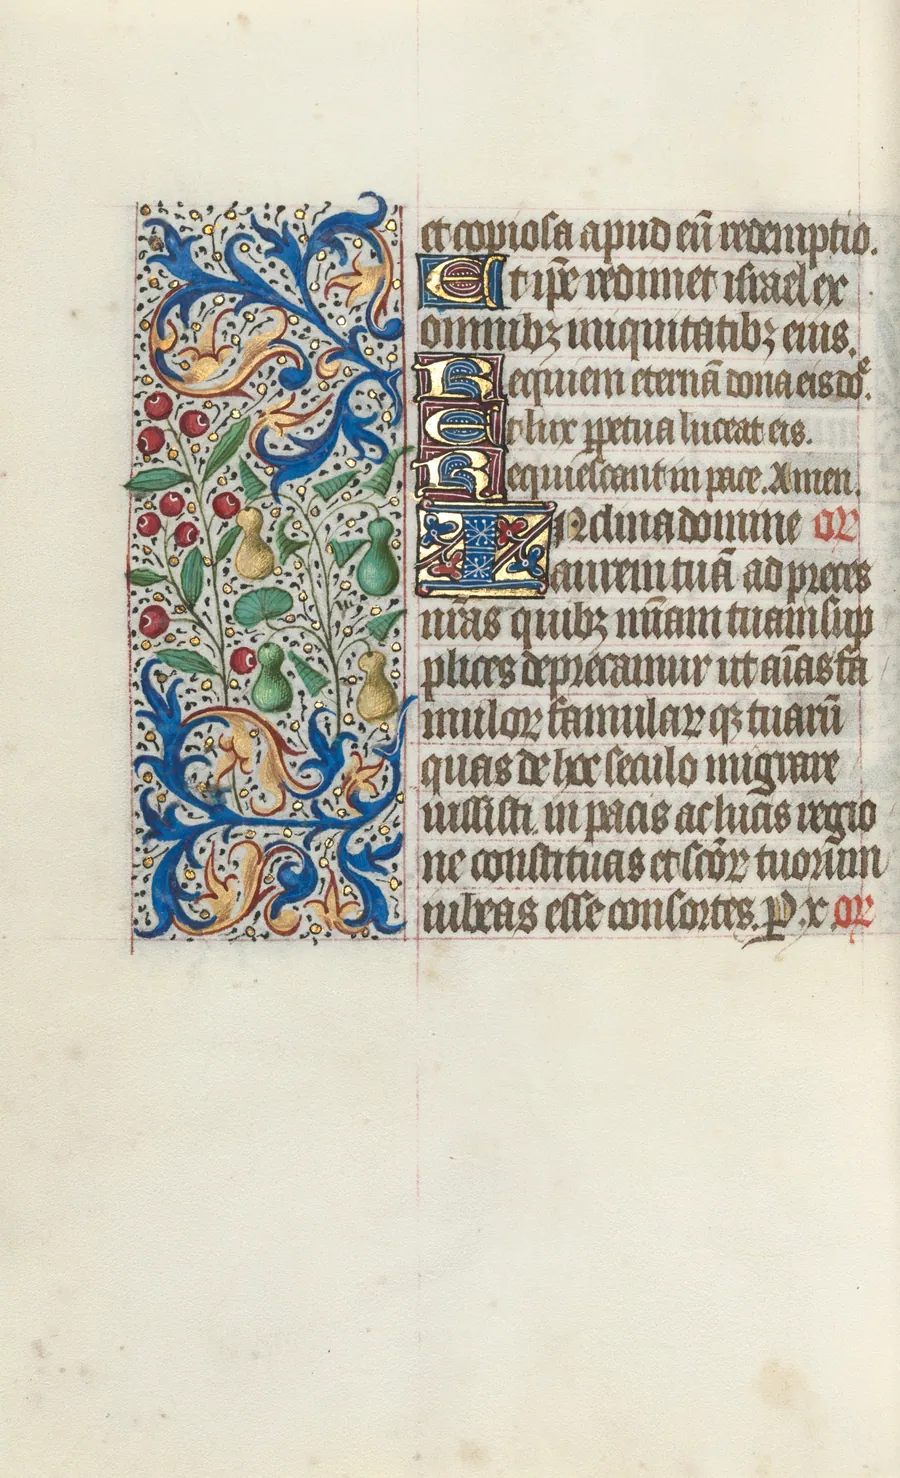 et copiosa apud eū redemptio.
Et ip̄e redimet israel ex
omnibꝫ iniquitatibꝫ eius.
Requiem eternā dona eis dōe.
Et lux ꝑpetua luceat eis.
Requiescant in pace. Amen.
Inclina domine or̄
aurem tuā ad preces
nr̄as quibꝫ mīam tuam sup
plices deprecamur ut aīas fa
mulor famular qꝫ tuarū
quas de hoc seculo migrare
iussisti, in pacis ac lucis regio
ne constituas et scōr tuorum
iubeas esse consortes. P. x. or̄